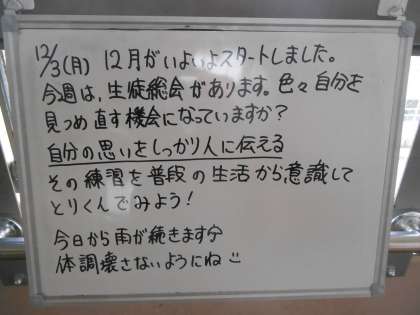 12/3(月) 12月がいよいよスタートしました。
今週は、生徒総会があります。色々自分を
見つめ直す機会になっていますか?
自分の思いをしっかり人に伝える
その練習を普段の生活から意識して
とりくんでみよう!
今日から雨が続きます分
体調壊さないようにね